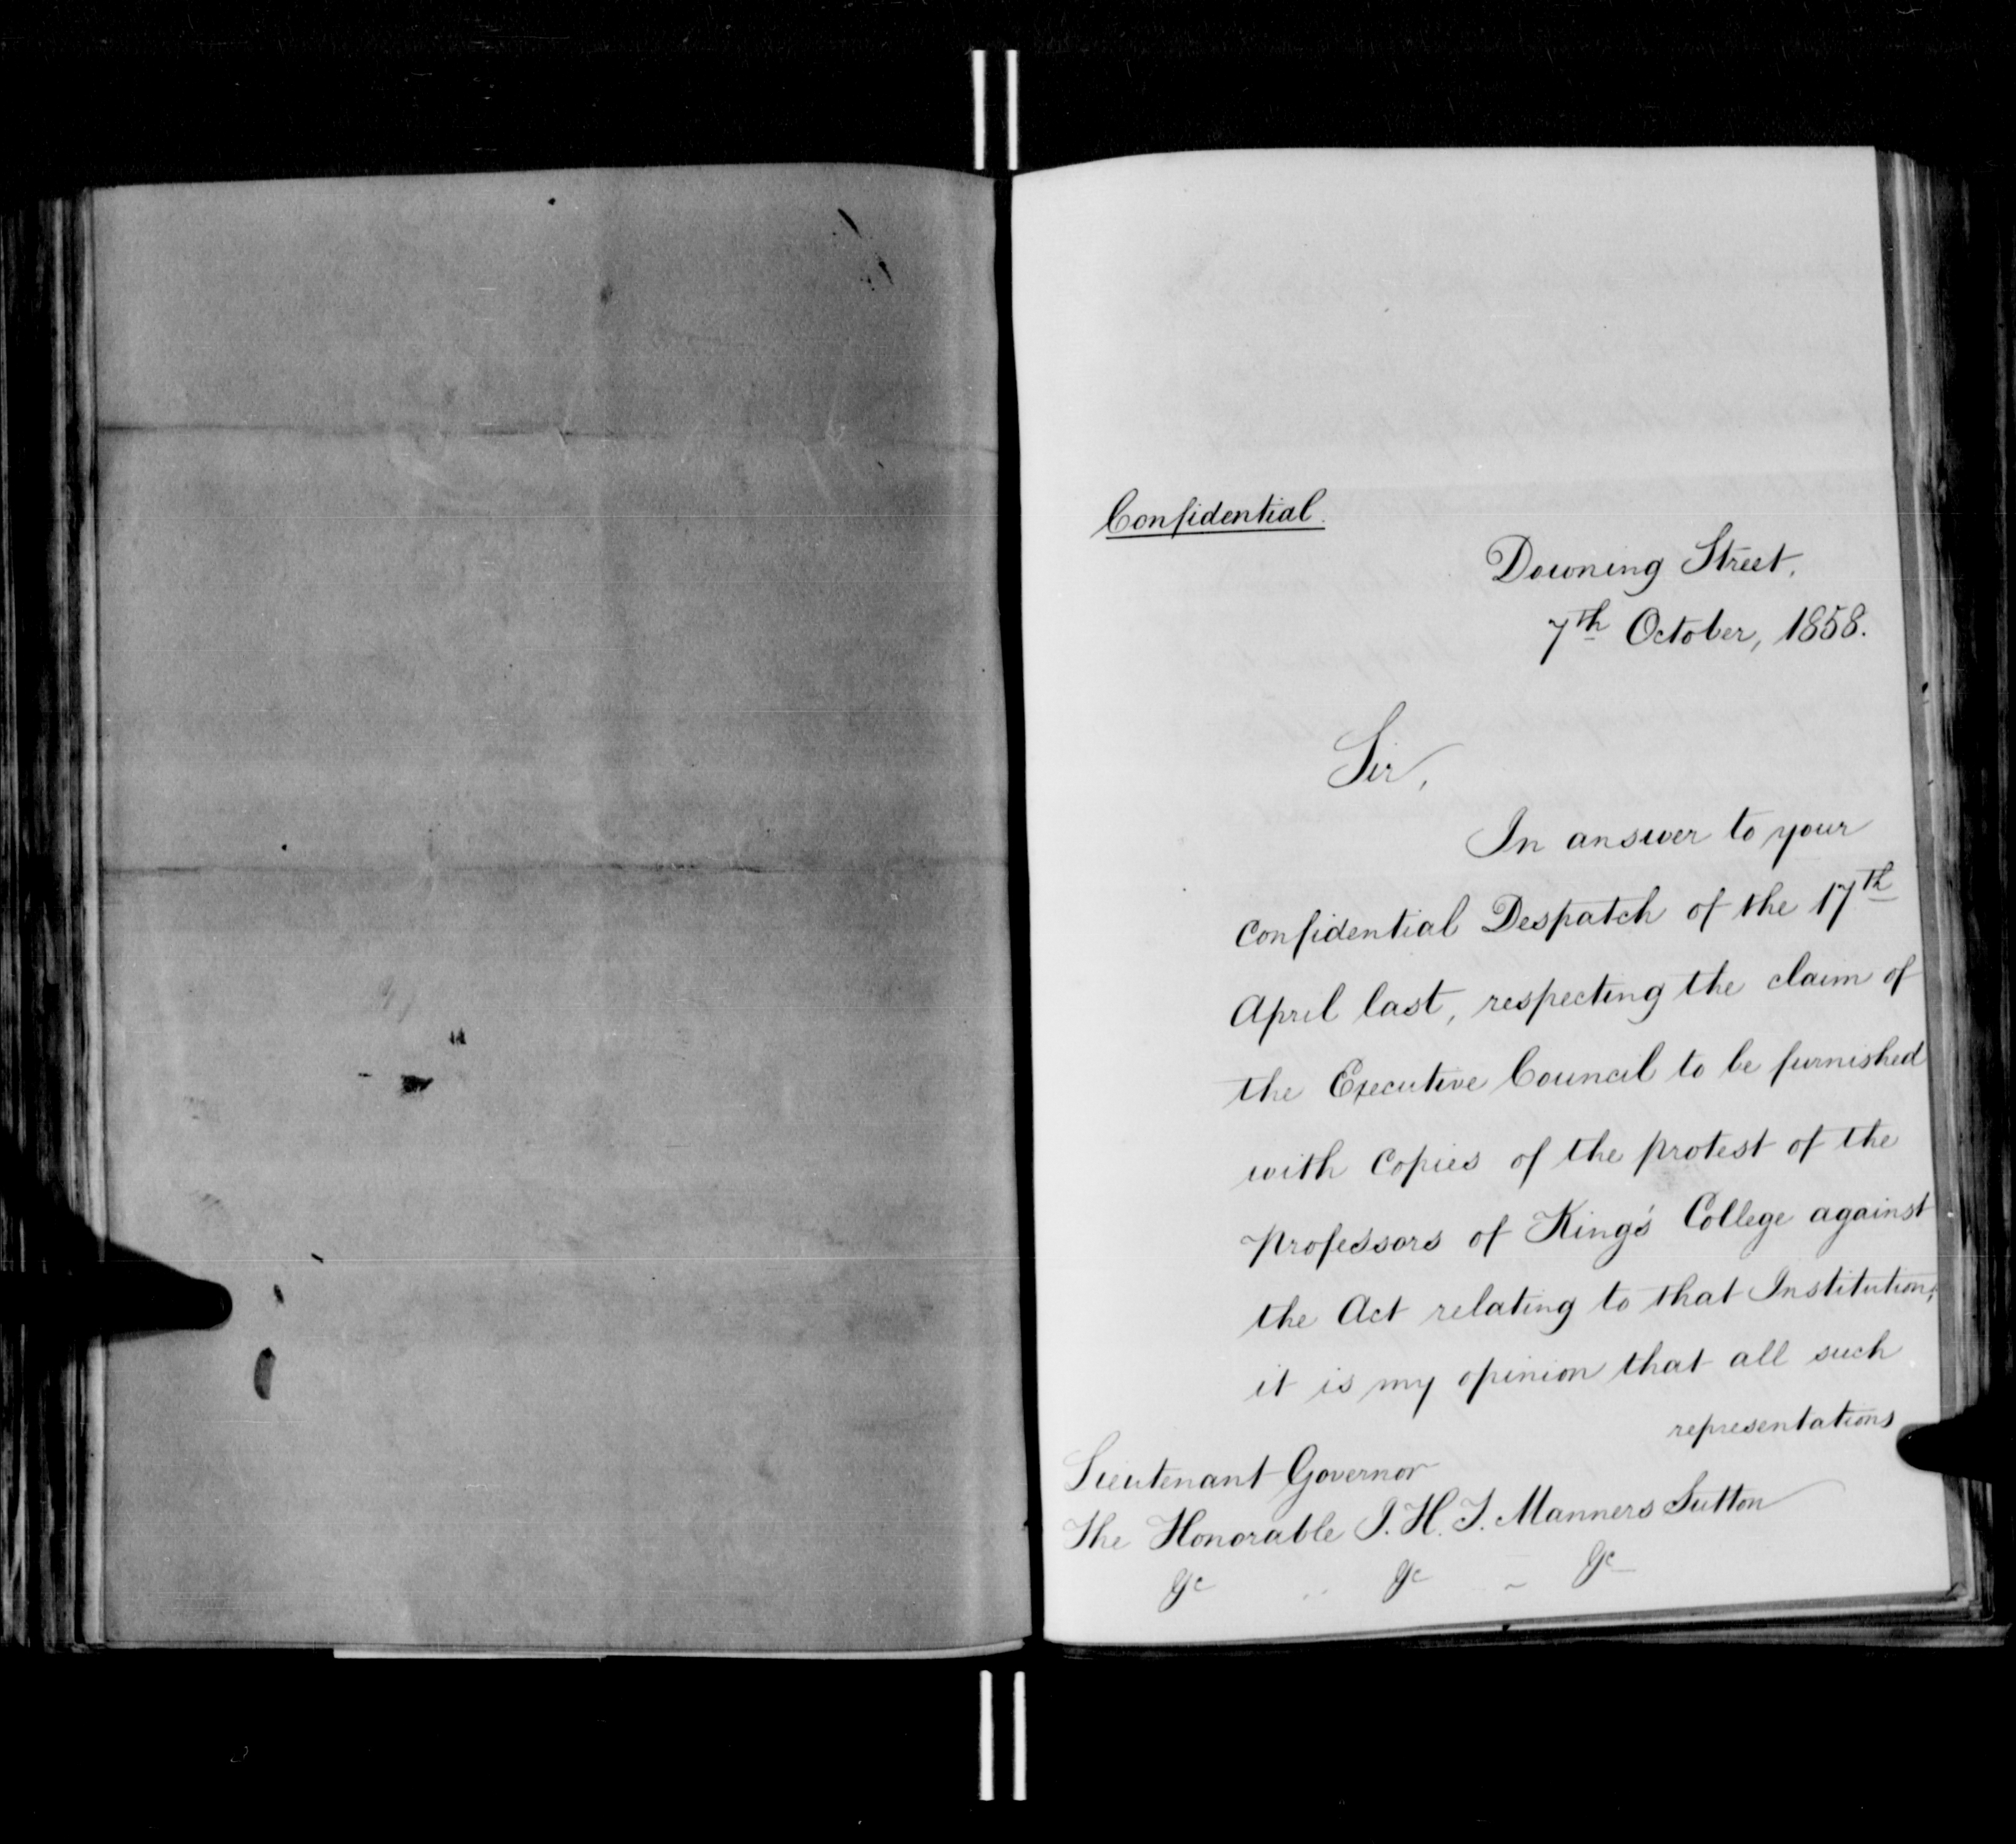 Confidential.
Downing Street,
7th October, 1858.
Sir,
In answer to your
confidential Despatch of the 17th
April last, respecting the claim of
the Executive Council to be furnished
with copies of the protest of the
professors of King's College against
the Act relating to that Institution,
it is my opinion that all such
representations
Lieutenant Governor
The Honorable J. H. T. Manners Sutton
&c &c &c